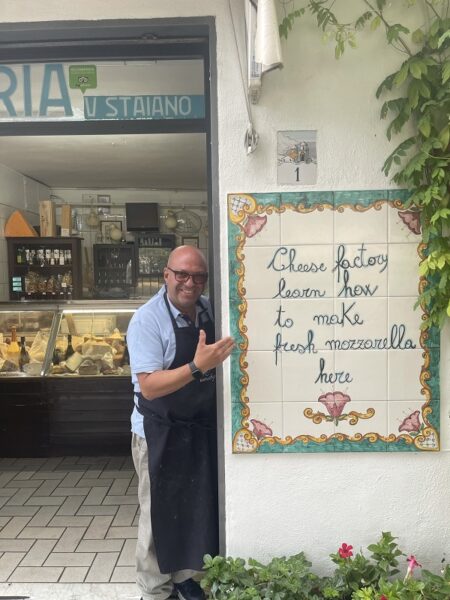 RIA
V STAIANO
1
Cheese factory
learn how
to make
fresh mozzarella
here